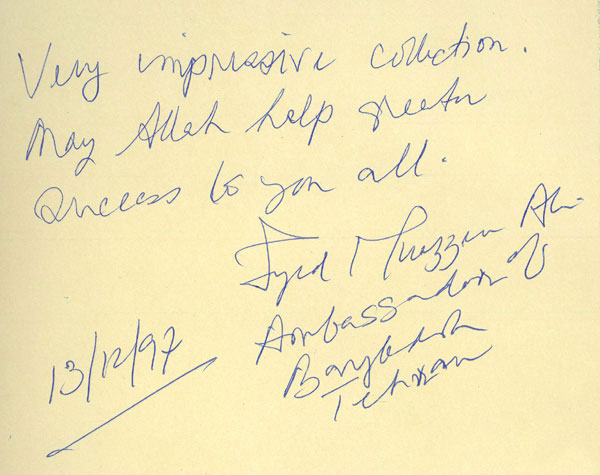 Very impressive collection.
May Allah help greater
success to you all.
Syed Muazzem Ali
Ambassador of
Bangladesh
Tehran
13/12/97